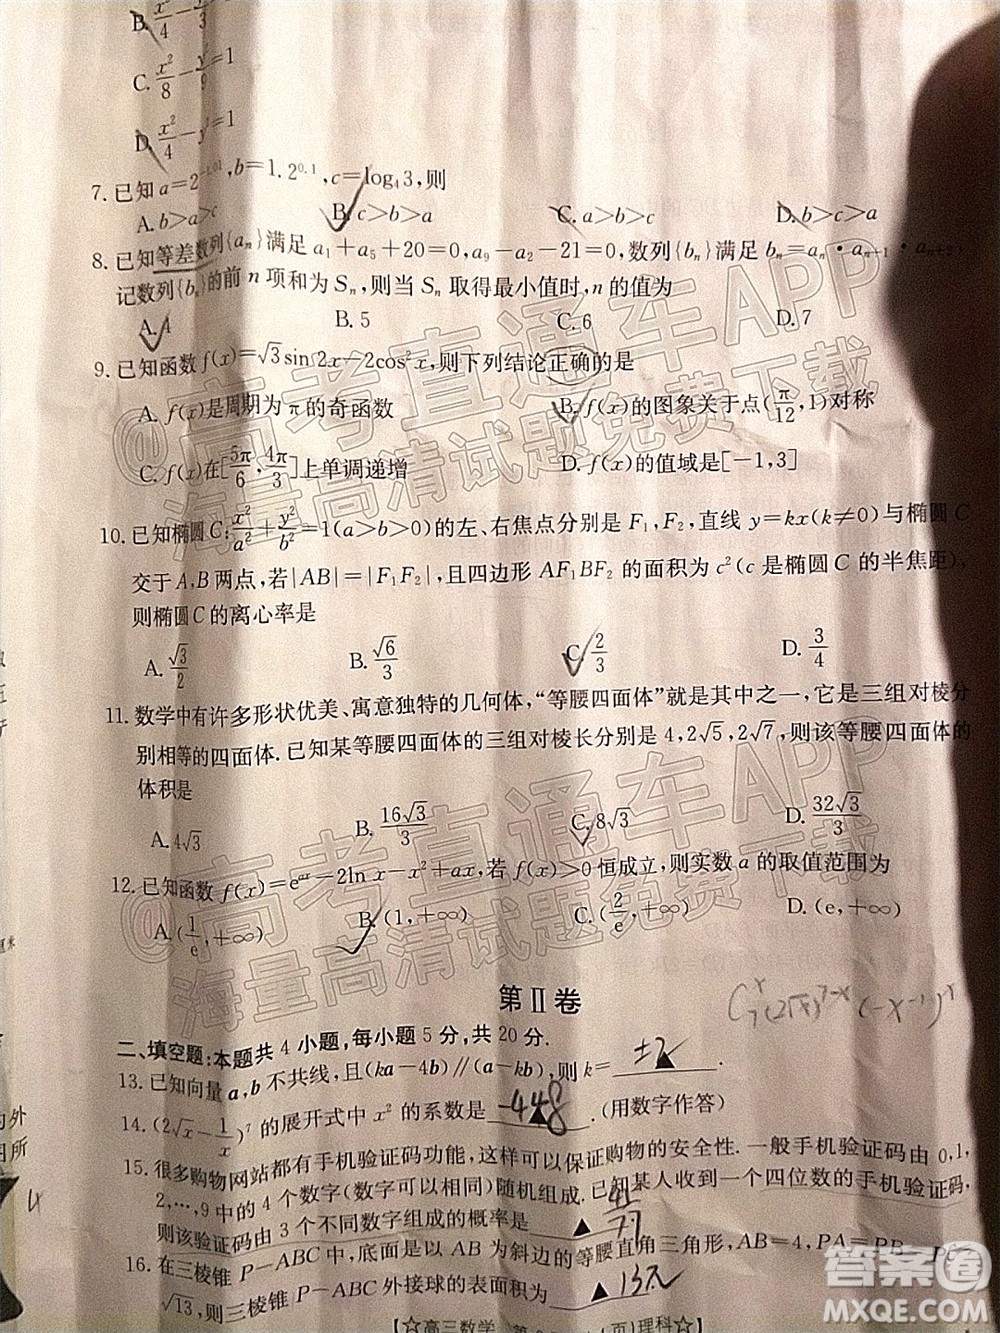 B. x²/4 -
C. x²/8 - y²/9 = 1
D. x²/4 - y² = 1
7. 已知 a=2^{-1.01}, b=1.2^{0.1}, c=log₄3, 则
A. b>a>c B. c>b>a C. a>b>c D. b>c>a
8. 已知等差数列{aₙ}满足 a₁+a₅+20=0, a₉-a₂-21=0, 数列{bₙ}满足 bₙ=aₙ·aₙ₊₁·aₙ₊₂
记数列{bₙ}的前 n 项和为 Sₙ, 则当 Sₙ 取得最小值时, n 的值为
A. 4 B. 5 C. 6 D. 7
9. 已知函数 f(x)=√3sin 2x-2cos²x, 则下列结论正确的是
A. f(x)是周期为 π 的奇函数 B. f(x)的图象关于点(π/12,1)对称
C. f(x)在[5π/6, 4π/3]上单调递增 D. f(x)的值域是[-1,3]
10. 已知椭圆 C: x²/a²+y²/b²=1(a>b>0)的左、右焦点分别是 F₁, F₂, 直线 y=kx(k≠0)与椭圆 C
交于 A,B 两点, 若|AB|=|F₁F₂|, 且四边形 AF₁BF₂ 的面积为 c²(c 是椭圆 C 的半焦距),
则椭圆 C 的离心率是
A. √3/2 B. √6/3 C. 2/3 D. 3/4
11. 数学中有许多形状优美、寓意独特的几何体, “等腰四面体”就是其中之一, 它是三组对棱分
别相等的四面体. 已知某等腰四面体的三组对棱长分别是 4, 2√5, 2√7, 则该等腰四面体的
体积是
A. 4√3 B. 16√3/3 C. 8√3 D. 32√3/3
12. 已知函数 f(x)=e^{ax}-2ln x-x²+ax, 若 f(x)>0 恒成立, 则实数 a 的取值范围为
A. (1/e,+∞) B. (1,+∞) C. (2/e,+∞) D. (e,+∞)
第Ⅱ卷
二、填空题: 本题共 4 小题, 每小题 5 分, 共 20 分.
13. 已知向量 a,b 不共线, 且(ka-4b)∥(a-kb), 则 k= ±2 ▲ .
14. (2√x-1/x)⁷ 的展开式中 x² 的系数是 -448 ▲ . (用数字作答)
15. 很多购物网站都有手机验证码功能, 这样可以保证购物的安全性. 一般手机验证码由 0,1,
2,…,9 中的 4 个数字(数字可以相同)随机组成. 已知某人收到一个四位数的手机验证码,
则该验证码由 3 个不同数字组成的概率是 ▲
16. 在三棱锥 P-ABC 中, 底面是以 AB 为斜边的等腰直角三角形, AB=4, PA=PB=PC=
√13, 则三棱锥 P-ABC 外接球的表面积为 ▲ 13π
【☆高三数学 第 页 理科☆】
@高考直通车APP
海量高清试题免费下载
@高考直通车APP
海量高清试题免费下载
答案圈
MXQE.COM